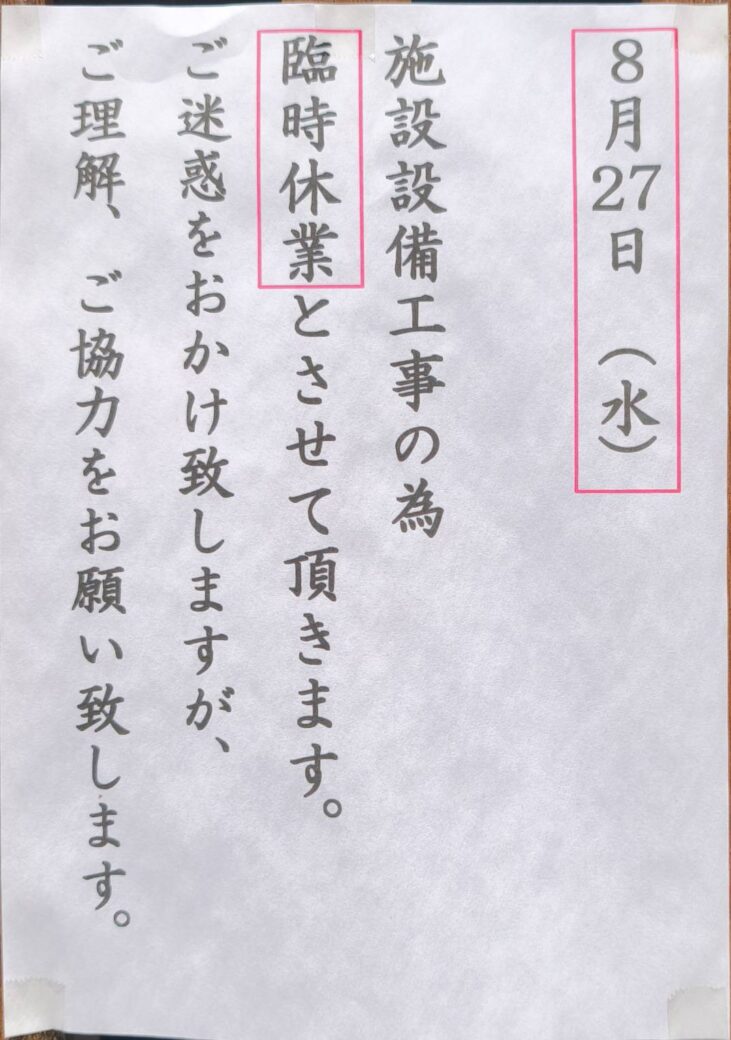 8月27日 （水）
施設設備工事の為
臨時休業とさせて頂きます。
ご迷惑をおかけ致しますが、
ご理解、ご協力をお願い致します。